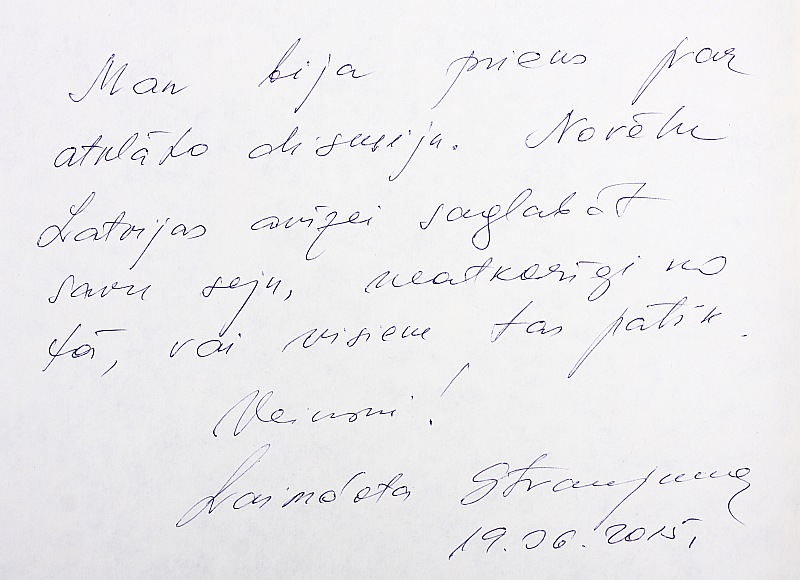 Man bija prieks par
atklāto diskusiju. Novēlu
Latvijas avīzei saglabāt
savu seju, neatkarīgi no
tā, vai visiem tas patīk.
Veiksmi!
Laimdota Straujuma
19.06.2015,